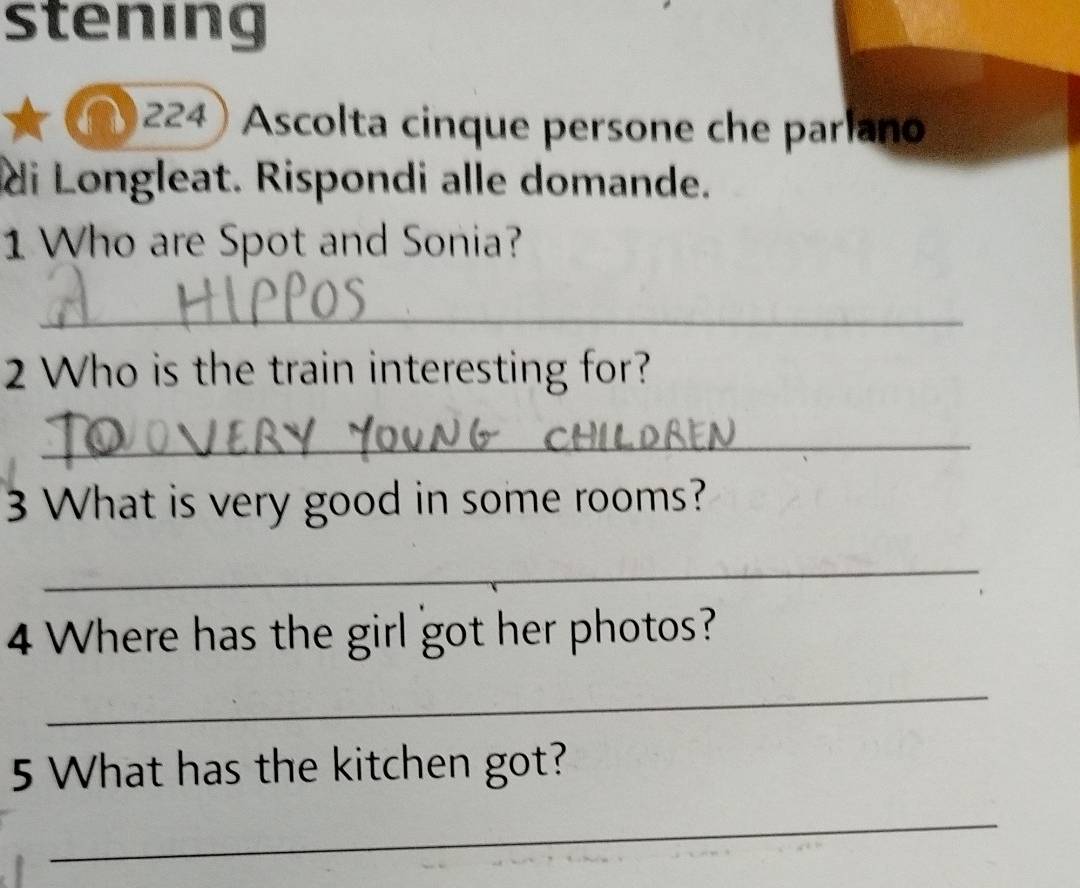 stening
224 Ascolta cinque persone che parlano
di Longleat. Rispondi alle domande.
1 Who are Spot and Sonia?
HIPPOS
2 Who is the train interesting for?
TO VERY YOUNG CHILDREN
3 What is very good in some rooms?
4 Where has the girl got her photos?
5 What has the kitchen got?